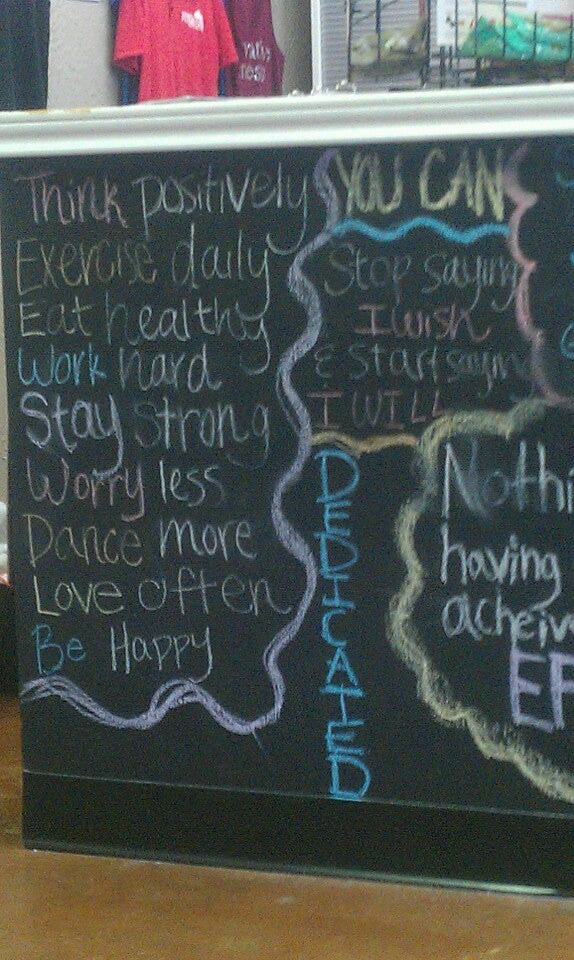 Think positively
Exercise daily
Eat healthy
Work hard
Stay strong
Worry less
Dance more
Love often
Be Happy
YOU CAN
Stop saying
I wish
& start saying
I WILL
DEDICATED
Nothi
having
acheiv
EF